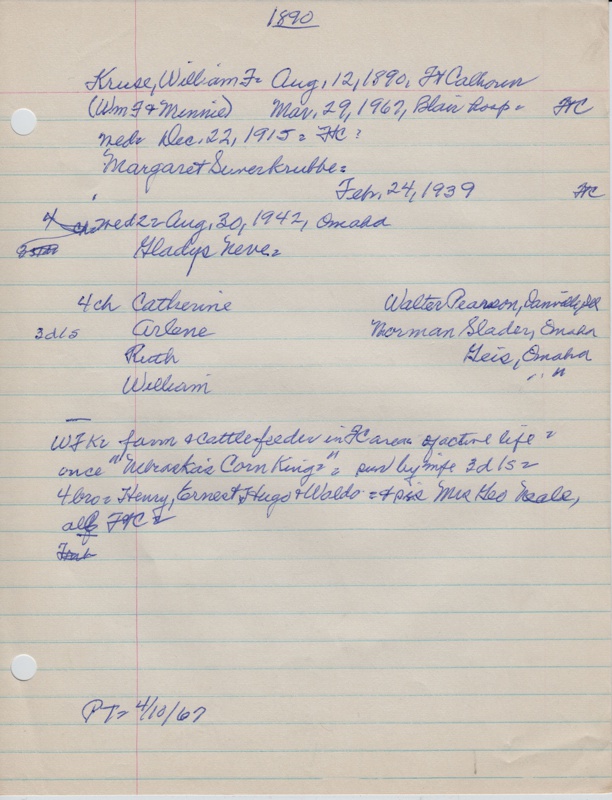 1890
Kruse, William F= Aug, 12, 1890, Ft Calhoun
(Wm F & Minnie) Mar. 29, 1967, Blair hosp= FtC
wed= Dec. 22, 1915= FtC:
Margaret Suverkrubbe=
Feb. 24, 1939 FtC
4 ch wed 2= Aug. 30, 1942, Omaha
Gladys Neve=
4ch Catherine Walter Pearson,
3d 1s Arlene Norman Slader, Omaha
Ruth Geis, Omaha
William " "
WFK= farm & cattlefeeder in FC area of active life=
once "Nebraska's Corn King="= sur by wife 3d 1s=
4bro= Henry, Ernest Hugo & Waldo= & sis Mrs Geo Neale,
all FtC=
PT= 4/10/67